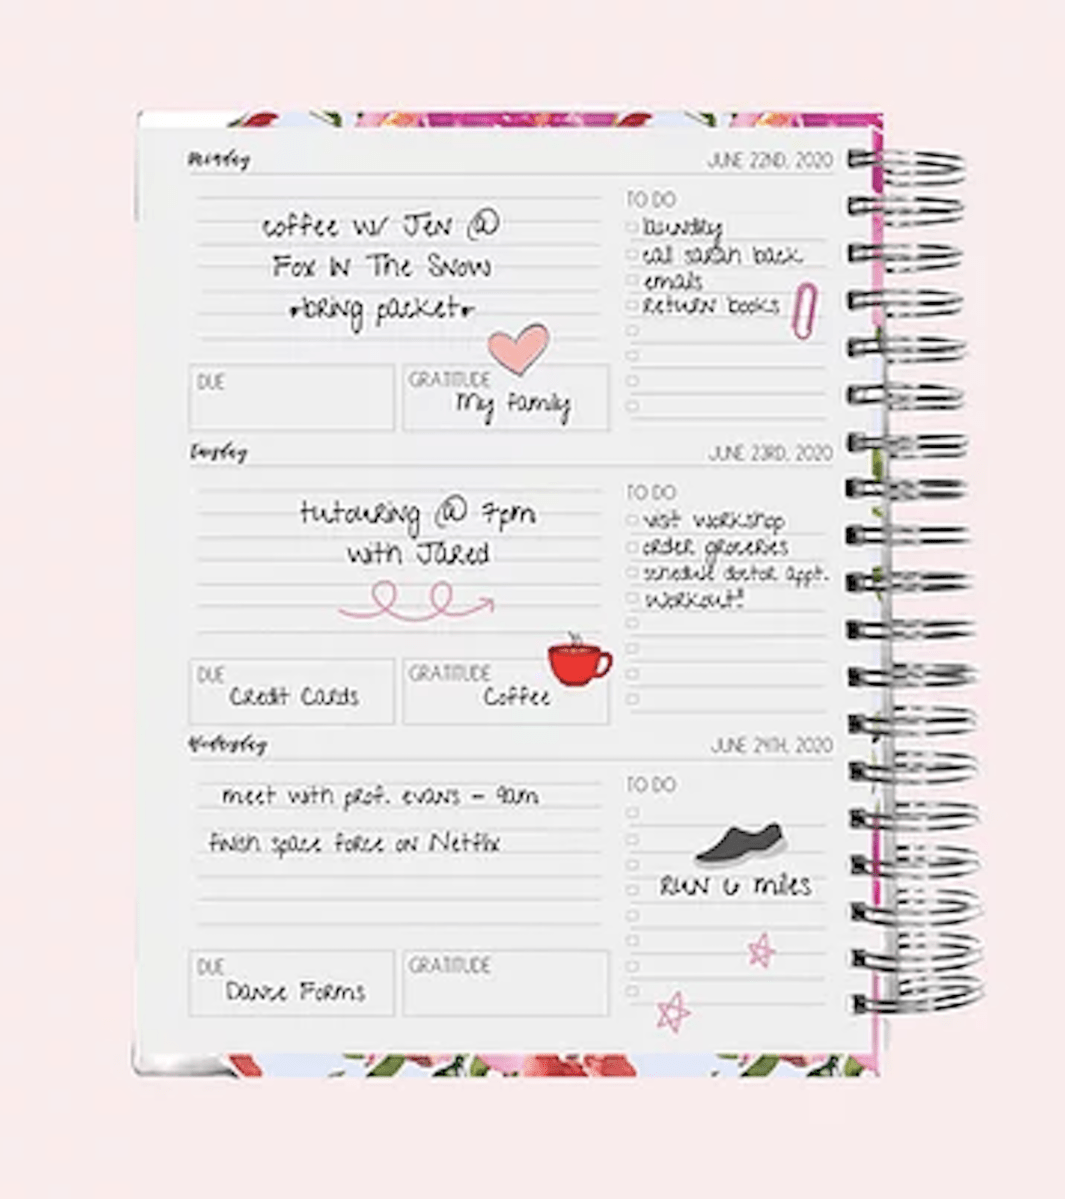 Monday
JUNE 22ND, 2020
coffee w/ Jen @
Fox IN The Snow
♥bring packet♥
TO DO
laundry
call sarah back
emails
return books
DUE
GRATITUDE
My family
Tuesday
JUNE 23RD, 2020
tutouring @ 7pm
with Jared
TO DO
visit workshop
order groceries
schedule doctor appt.
workout!!
DUE
Credit Cards
GRATITUDE
Coffee
Wednesday
JUNE 24TH, 2020
meet with prof. evans - 9am
finish space force on Netflix
TO DO
RUN 6 miles
DUE
Dance Forms
GRATITUDE